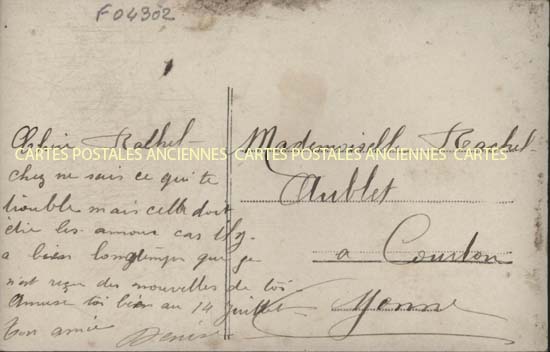 F04302
Chère Rachel
chez ne sais ce qui te
trouble mais cella doit
etre les amour cas il y
a bien longtemps que je
n'est reçu des nouvelles de toi
Amuse toi bien au 14 juillet
ton amie
Denise
Mademoiselle Rachel
Aublet
a Courlon
Yonne
CARTES POSTALES ANCIENNES CARTES POSTALES ANCIENNES CARTES